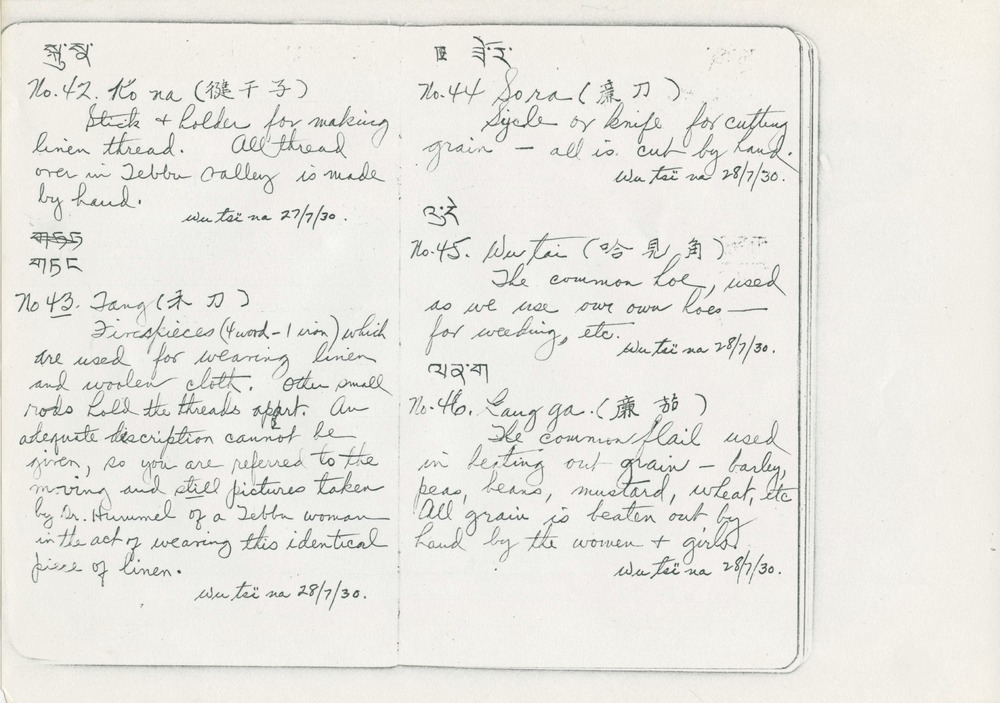 No. 42. Ko na (徤干子)
Stick + holder for making
linen thread. All thread
over in Tebbu valley is made
by hand.
Wu tsï na 27/7/30.
གཏད
གཏད
No 43. Tang (禾刀)
Five pieces (4 wood - 1 iron) which
are used for weaving linen
and woolen cloth. Other small
rods hold the threads apart. An
adequate description cannot be
given, so you are referred to the
moving and still pictures taken
by Dr. Hummel of a Tebbu woman
in the act of weaving this identical
piece of linen.
Wu tsï na 28/7/30.
No. 44 Sora (廉刀)
Sycle or knife for cutting
grain — all is cut by hand.
Wu tsï na 28/7/30.
No. 45. Wu tai (哈見角)
The common hoe, used
as we use our own hoes —
for weeding, etc.
Wu tsï na 28/7/30.
No. 46. Lang ga. (廉茄)
The common flail used
in beating out grain — barley,
peas, beans, mustard, wheat, etc
All grain is beaten out by
hand by the women + girls.
Wu tsï na 28/7/30.